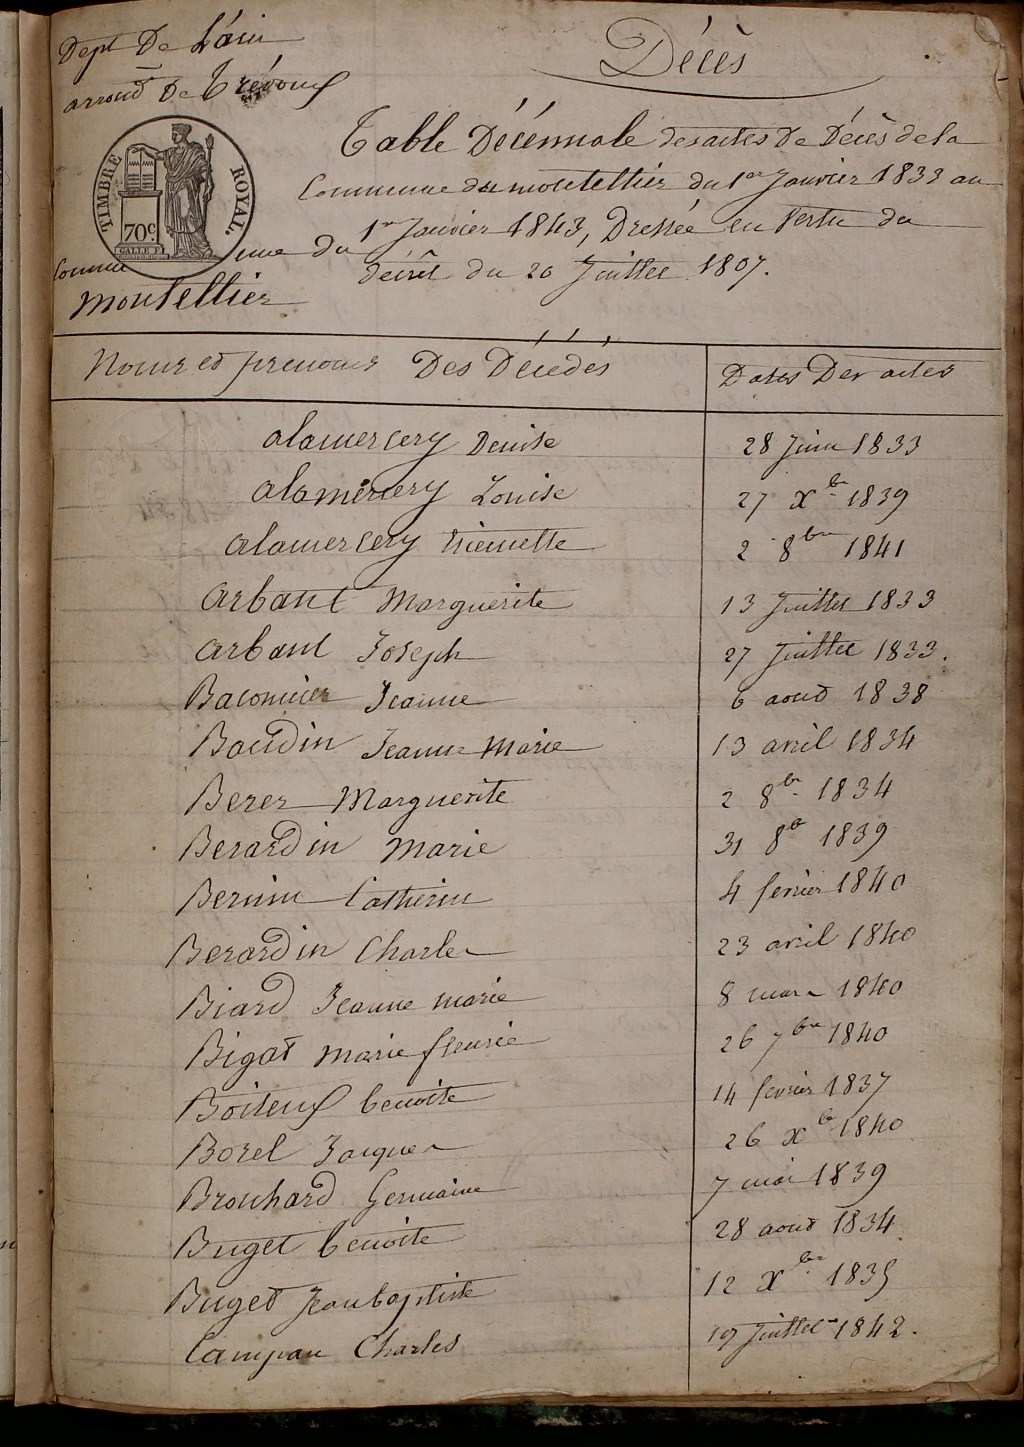 Dept De L'ain
arrond De Trévoux
Décès
Table Décennale des actes De Décès de la
Commune du montellier du 1er Janvier 1833 au
1er Janvier 1843, Dressée en Vertu du
décrêt du 20 Juillet 1807.
TIMBRE ROYAL.
70c
Commune du
montellier
Noms et prenoms Des Décédés
Dates Des actes
alamercery Denise 28 Juin 1833
alamercery Louise 27 Xbre 1839
alamercery 2 8bre 1841
arbant Marguerite 13 Juillet 1833
arbant Joseph 27 Juillet 1833.
Baconnier Jeanne 6 aout 1838
Baudin Jeanne Marie 13 avril 1834
Berer Marguerite 2 8bre 1834
Berardin Marie 31 8bre 1839
Bernin Catherine 4 fevrier 1840
Berardin Charles 23 avril 1840
Biard Jeanne marie 8 mars 1840
Bigot marie fleurie 26 7bre 1840
Boiteux benoite 14 fevrier 1837
Borel Jacques 26 Xbre 1840
Brouhard Germaine 7 mai 1839
Buget benoite 28 aout 1834
Buget Jean baptiste 12 Xbre 1835
Campan Charles 19 Juillet 1842.